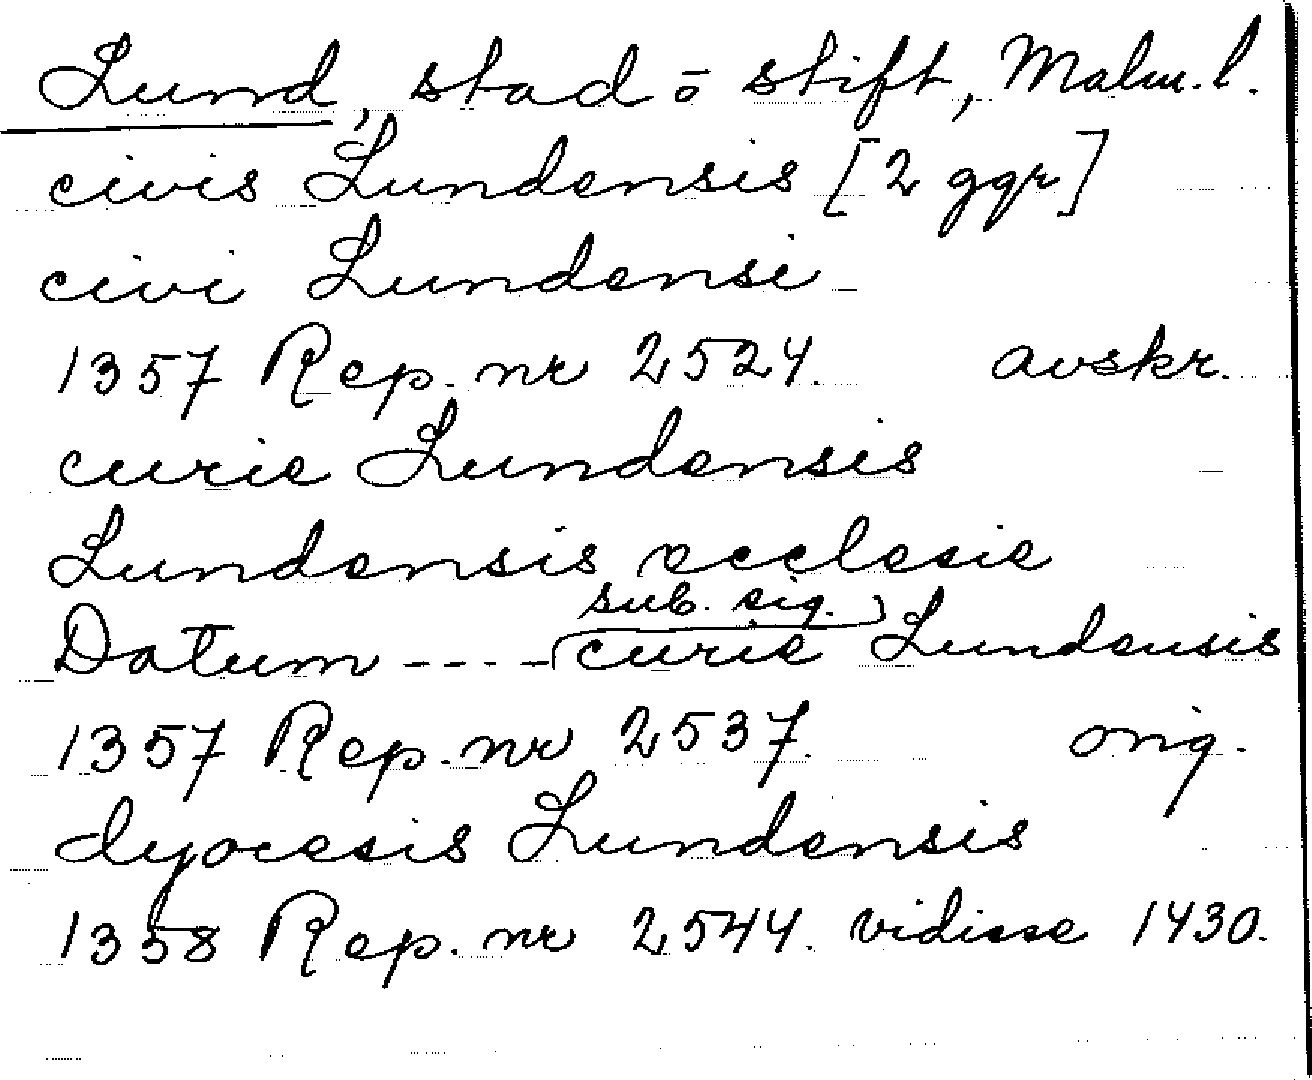 Lund, stad o stift, Malm. l.
civis Lundensis [2 ggr]
civi Lundensi
1357 Rep. nr 2524. avskr.
curie Lundensis
Lundensis ecclesie
sub. sig.
Datum ---- curie Lundensis
1357 Rep. nr 2537. orig.
dyocesis Lundensis
1358 Rep. nr 2544. vidisse 1430.